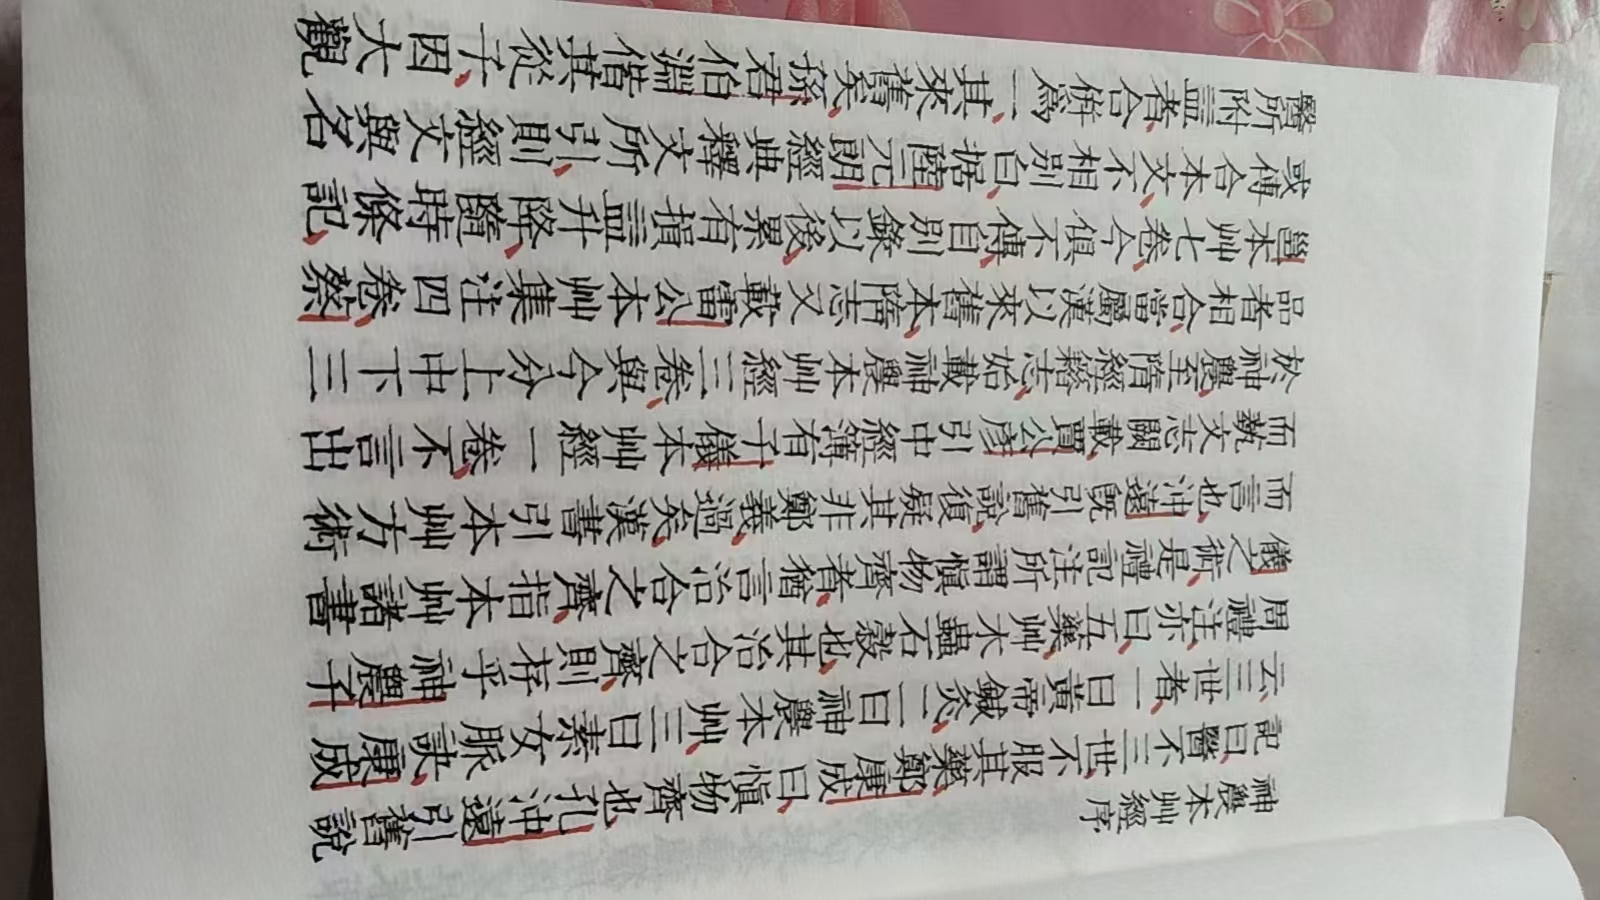 神農本艸經序
記曰醫不三世不服其藥鄭康成曰慎物齊也孔沖遠引舊說
云三世者一曰黃帝鍼灸二曰神農本艸三曰素女脈訣康成
周禮注亦曰五藥艸木蟲石穀也其治合之齊則存乎神農子
儀之術是禮記注所謂慎物齊者猶言治合之齊指本艸諸書
而言也沖遠旣引舊說復疑其非鄭義過矣漢書引本艸方術
而埶文志闕載賈公彥引中經簿有子儀本艸經一卷不言出
於神農至隋經籍志始載神農本艸經三卷與今分上中下三
品者相合當屬漢以來舊本隋志又載雷公本艸集注四卷蔡
邕本艸七卷今俱不傳自別錄以後累有損益升降隨時條記
或傳合本文不相別白据陸元朗經典釋文所引則經文與名
醫所附益者合併為一其來舊矣孫君伯淵偕其從子因大觀